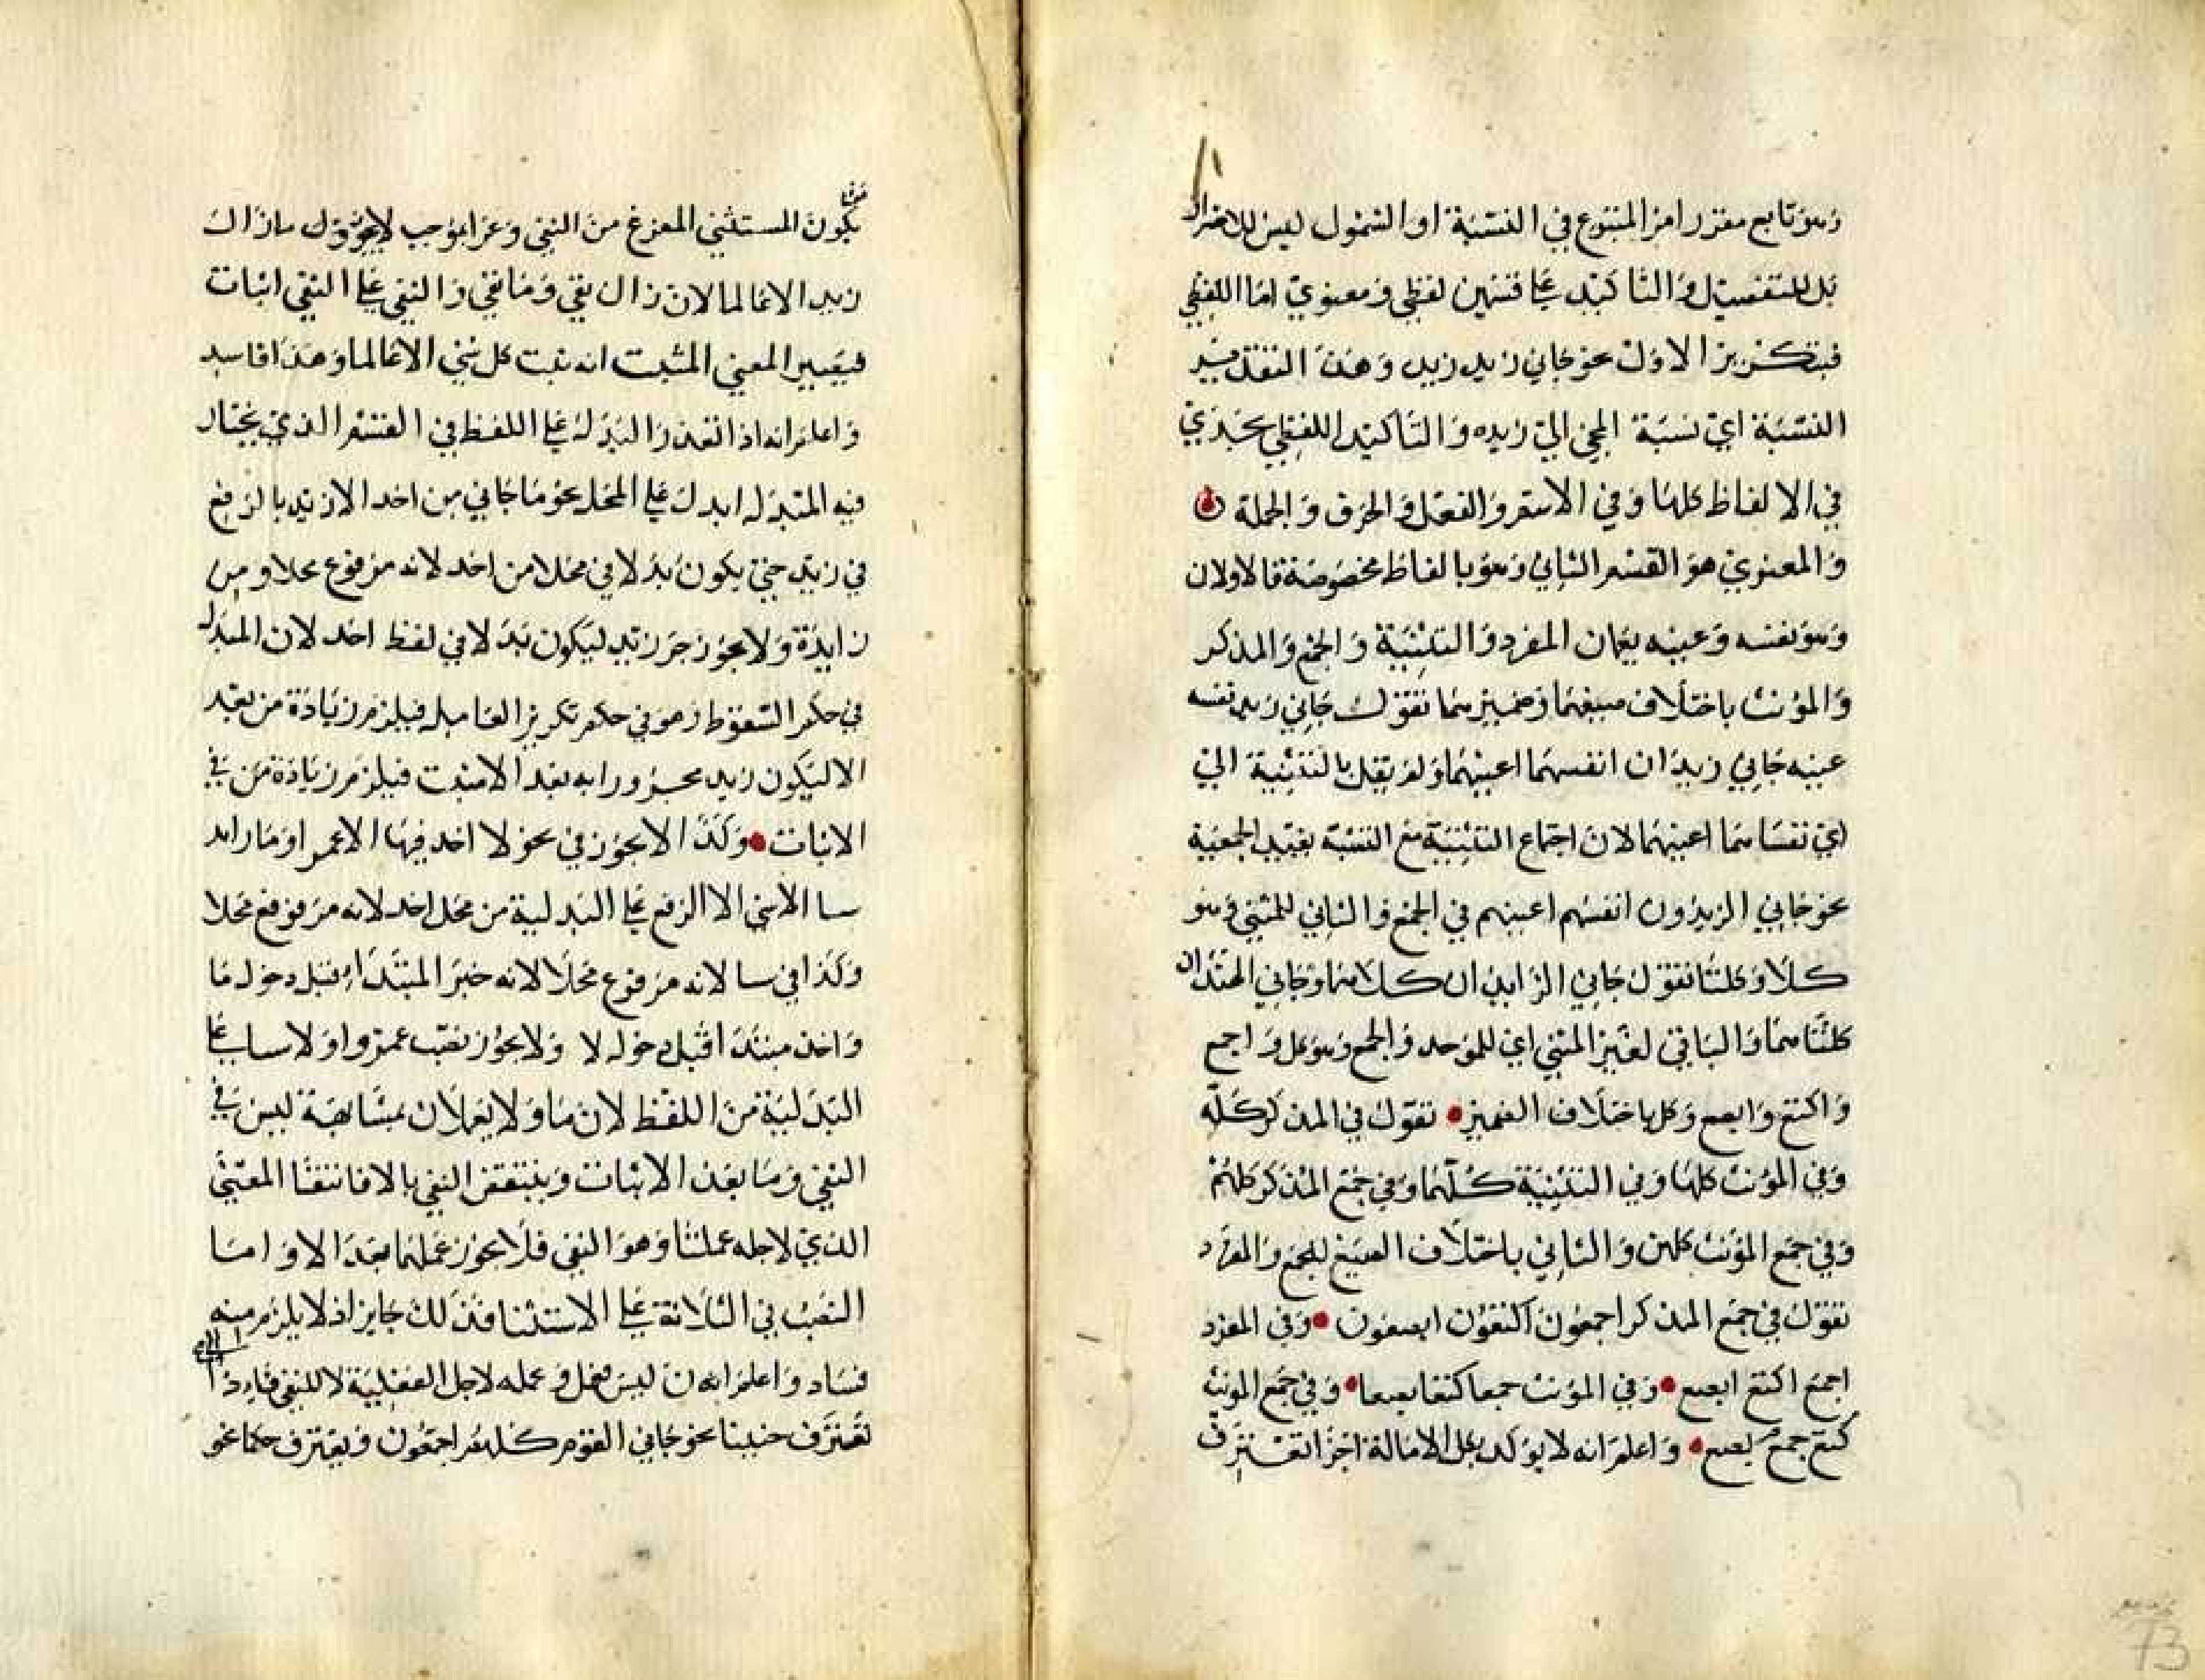 وهو تابع مقرر امر المتبوع في النسبة او الشمول ليس للاضراب
بل للتفصيل والتاكيد على قسمين لفظي ومعنوي اما اللفظي
فبتكرير الاول نحو جاني زيد زيد وهذا التقدير
النسبة اي نسبة المجي الي زيد والتاكيد اللفظي يجري
في الالفاظ كلها وفي الاسم والفعل والحرف والجملة
والمعنوي هو القسم الثاني وهو بالفاظ مخصوصة فالاولان
وهو نفسه وعينه يعمان المفرد والتثنية والجمع والمذكر
والمؤنث باختلاف صيغهما وضميرهما نقول جاني زيد نفسه
عينه جاني زيدان انفسهما اعينهما ولم يقل بالتثنية الي
اي نفساهما اعينهما لان اجتماع التثنية مع النسبة يفيد الجمعية
نحو جاني الزيدون انفسهم اعينهم في الجمع والثاني للمثني وهو
كلا وكلتا نقول جاني الزايدان كلاهما وجاني الهندان
كلتاهما والباقي لغير المثني اي للموحد والجمع وهو كل واجمع
واكتع وابصع وكل باختلاف الضمير نقول في المذكر كله
وفي المؤنث كلها وفي التثنية كلهما وفي جمع المذكر كلهم
وفي جمع المؤنث كلهن والثاني باختلاف الصيغ للجمع والمفرد
نقول في جمع المذكر اجمعون اكتعون ابصعون وفي المفرد
اجمع اكتع ابصع وفي المؤنث جمعا كتعا بصعا وفي جمع المونث
كتع جمع بصع واعلم انه لا يوكد بكل الا ماله اجزا تفترق
يكون المستثني المفرغ من النفي وعن الموجب لا يجوز قولك مازال
زيد الا عالما لان زال نفي وما نفي والنفي علي النفي اثبات
فيصير المعني المثبت انه ثبت كل شي الا عالما وهذا فاسد
واعلم انه اذا تعذر البدل علي اللفظ في القسم الذي يختار
فيه البدل ابدل علي المحل نحو ما جاني من احد الا زيد بالرفع
في زيد حتي يكون بدلا في محلا من احد لانه مرفوع محلا ومن
زايدة ولا يجوز جر زيد ليكون بدلا في لفظ احد لان المبدل
في حكم السقوط وهو في حكم تكرير العامل فيلزم زيادة من بعد
الا ليكون زيد مجرورا به بعد الا مثبت فيلزم زيادة من في
الاثبات وكذا لا يجوز في نحو لا احد فيها الا عمر او ما زايد
سا الا شي الا الرفع علي البدلية من محل احد لانه مرفوع محلا
وكذا في سا لانه مرفوع محلا لانه خبر المبتدا قبل دخول ما
واحد مبتدا قبل دخول لا ولا يجوز نصب عمروا ولا سا علي
البدلية من اللفظ لان ما ولا يعملان بمشابهة ليس في
النفي وما بعد الا اثبات وينتقض النفي بالا فانتفا المعني
الذي لاجله عملتا وهو النفي فلا يجوز عملهما بعد الا واما
النصب في الثلاثة علي الاستثنا فذلك جايز اذ لا يلزم منه
فساد واعلم ان ليس فعل وعمله لاجل الفعلية لا للنفي فاذا
تفترق حسيبا نحو جاني القوم كلهم اجمعون ويفترق حكما نحو